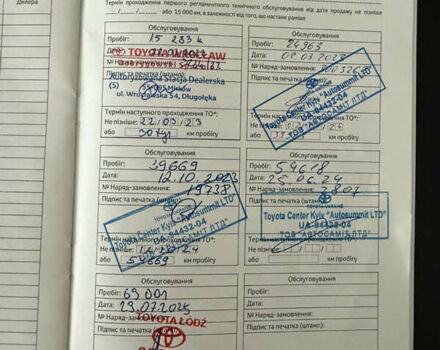 Дилера
Термін проходження першого регламентного технічного обслуговування від дати продажу не пізніше
або 15 000 км, в залежності від того, що настане раніше
Обслуговування
Пробіг: 15 233 k
Дата:
TOYOTA WROCŁAW
№ Наряд-замовлення:
Підпис та печатка (штамп):
Autoryzowana Stacja Dealerska
(5)
ul. Wrocławska 54, Długołęka
Термін наступного проходження ТО*:
Не пізніше: 22/03/23
або 30 ty км пробігу
Обслуговування
Пробіг: 24963
Дата: 02.03.2023
№ Наряд-замовлення:
Підпис та печатка
Toyota Center Kyiv "Autosummit LTD"
UA-94432-04
ТОВ "АВТОСАМІТ ЛТД"
Термін наступного проходження ТО*:
Не пізніше:
або км пробігу
Обслуговування
Пробіг: 39669
Дата: 12.10.2023
№ Наряд-замовлення: 19738
Підпис та печатка (штамп):
Toyota Center Kyiv "Autosummit LTD"
UA-94432-04
ТОВ "АВТОСАМІТ ЛТД"
Термін наступного проходження ТО*:
Не пізніше:
або 54669 км пробігу
Обслуговування
Пробіг: 54618
Дата: 25.06.24
№ Наряд-замовлення: 2807
Підпис та печатка (штамп):
TOYOTA UKRAINE
Toyota Center Kyiv "Autosummit LTD"
UA-94432-04
ТОВ "АВТОСАМІТ ЛТД"
Термін
Не пізніше:
або км пробігу
Обслуговування
Пробіг: 69 001
Дата: 29.07.2025
№ Наряд-замовлення:
TOYOTA ŁÓDŹ
Підпис та печатка (штамп):
Обслуговування
Пробіг:
Дата:
№ Наряд-замовлення:
Підпис та печатка (штамп):